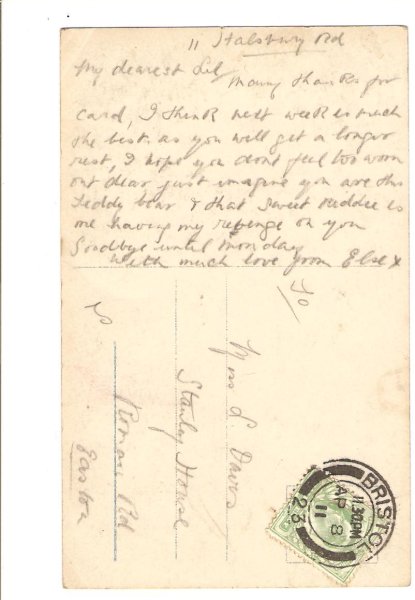 11 Stalsbury Rd
My dearest Lil,
Many thanks for
card, I think next week is much
the best. as you will get a longer
rest, I hope you dont feel too worn
out dear, just imagine you are this
Teddy bear & that sweet kiddie is
me having my revenge on you
Goodbye until Monday
With much love from Else x
To
Miss L. Davis
Stanly House
Roman Rd
Easton
BRISTOL
11.30PM
AP 8
11
23